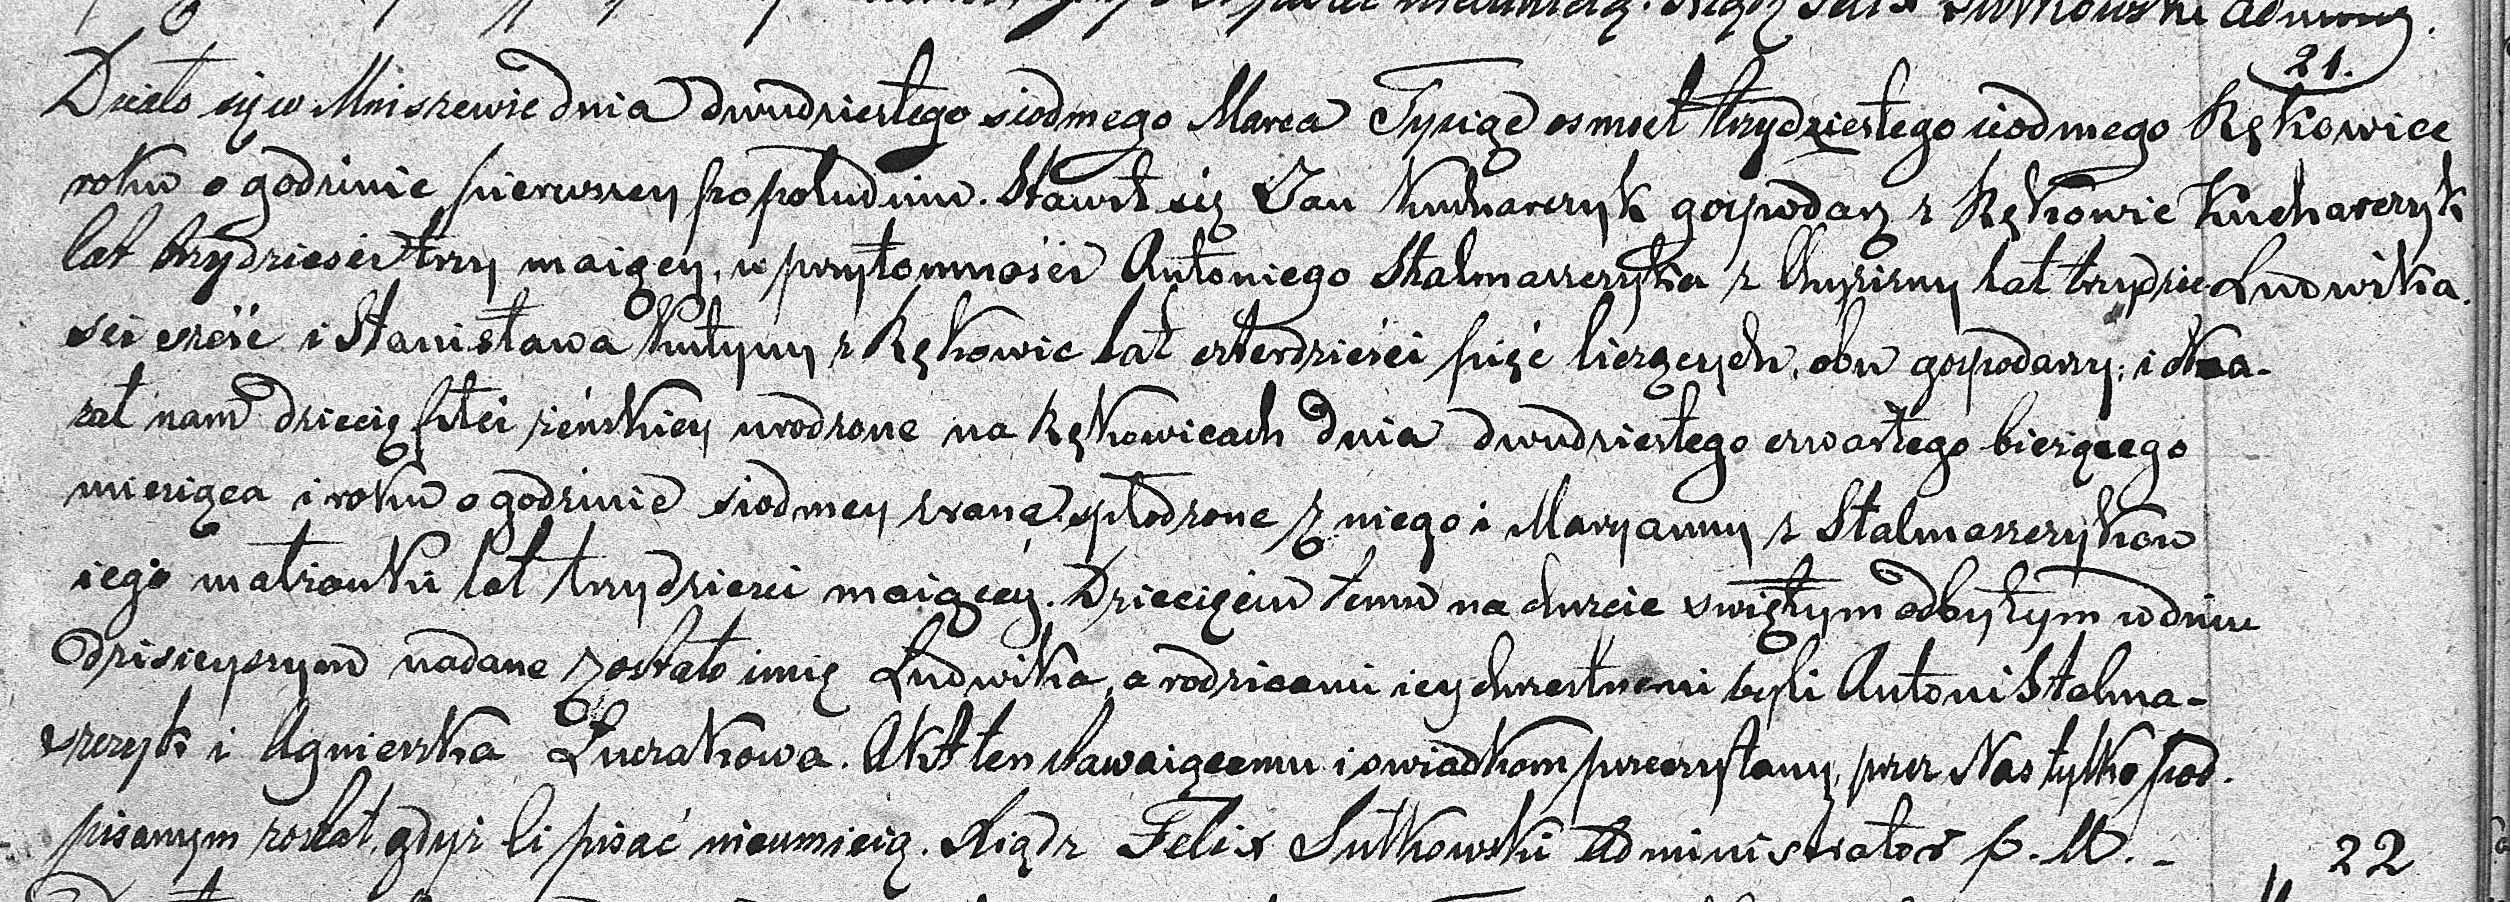 Xiądz Felix Sutkowski Admin
21.
Działo się w Mniszewie dnia dwudziestego siodmego Marca Tysiąc osmset trzydziestego siodmego Rękowice
roku o godzinie pierwszey popołudniu. Stawił się Jan Kucharczyk gospodarz z Rękowic Kucharczyk
lat trzydzieści trzy maiący, w przytomności Antoniego Stalmaszczyka z Chyzizny lat trzydzie- Ludwika.
ści sześć i Stanisława Kutyny z Rękowic lat czterdzieści pięć liczących, obu gospodarzy; i oka-
zał nam dziecię płci żeńskiey urodzone na Rękowicach dnia dwudziestego czwartego bieżącego
miesiąca i roku o godzinie siodmey zrana. spłodzone z niego i Maryanny z Stalmaszczyków
iego małżonki lat trzydzieści maiącey. Dziecięciu temu na chrzcie świętym odbytym w dniu
dzisieyszym nadane zostało imię Ludwika, a rodzicami iey chrzestnemi byli Antoni Stalma-
szczyk i Agnieszka Łuczakowa. Akt ten stawaiącemu i świadkom przeczytany, przez Nas tylko pod-
pisanym został, gdyż ci pisać nieumieią. Xiądz Felix Sutkowski Administrator p. M. -
22